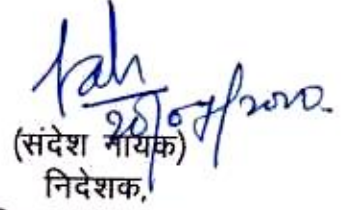 20/07/2020.
(संदेश नायक)
निदेशक,